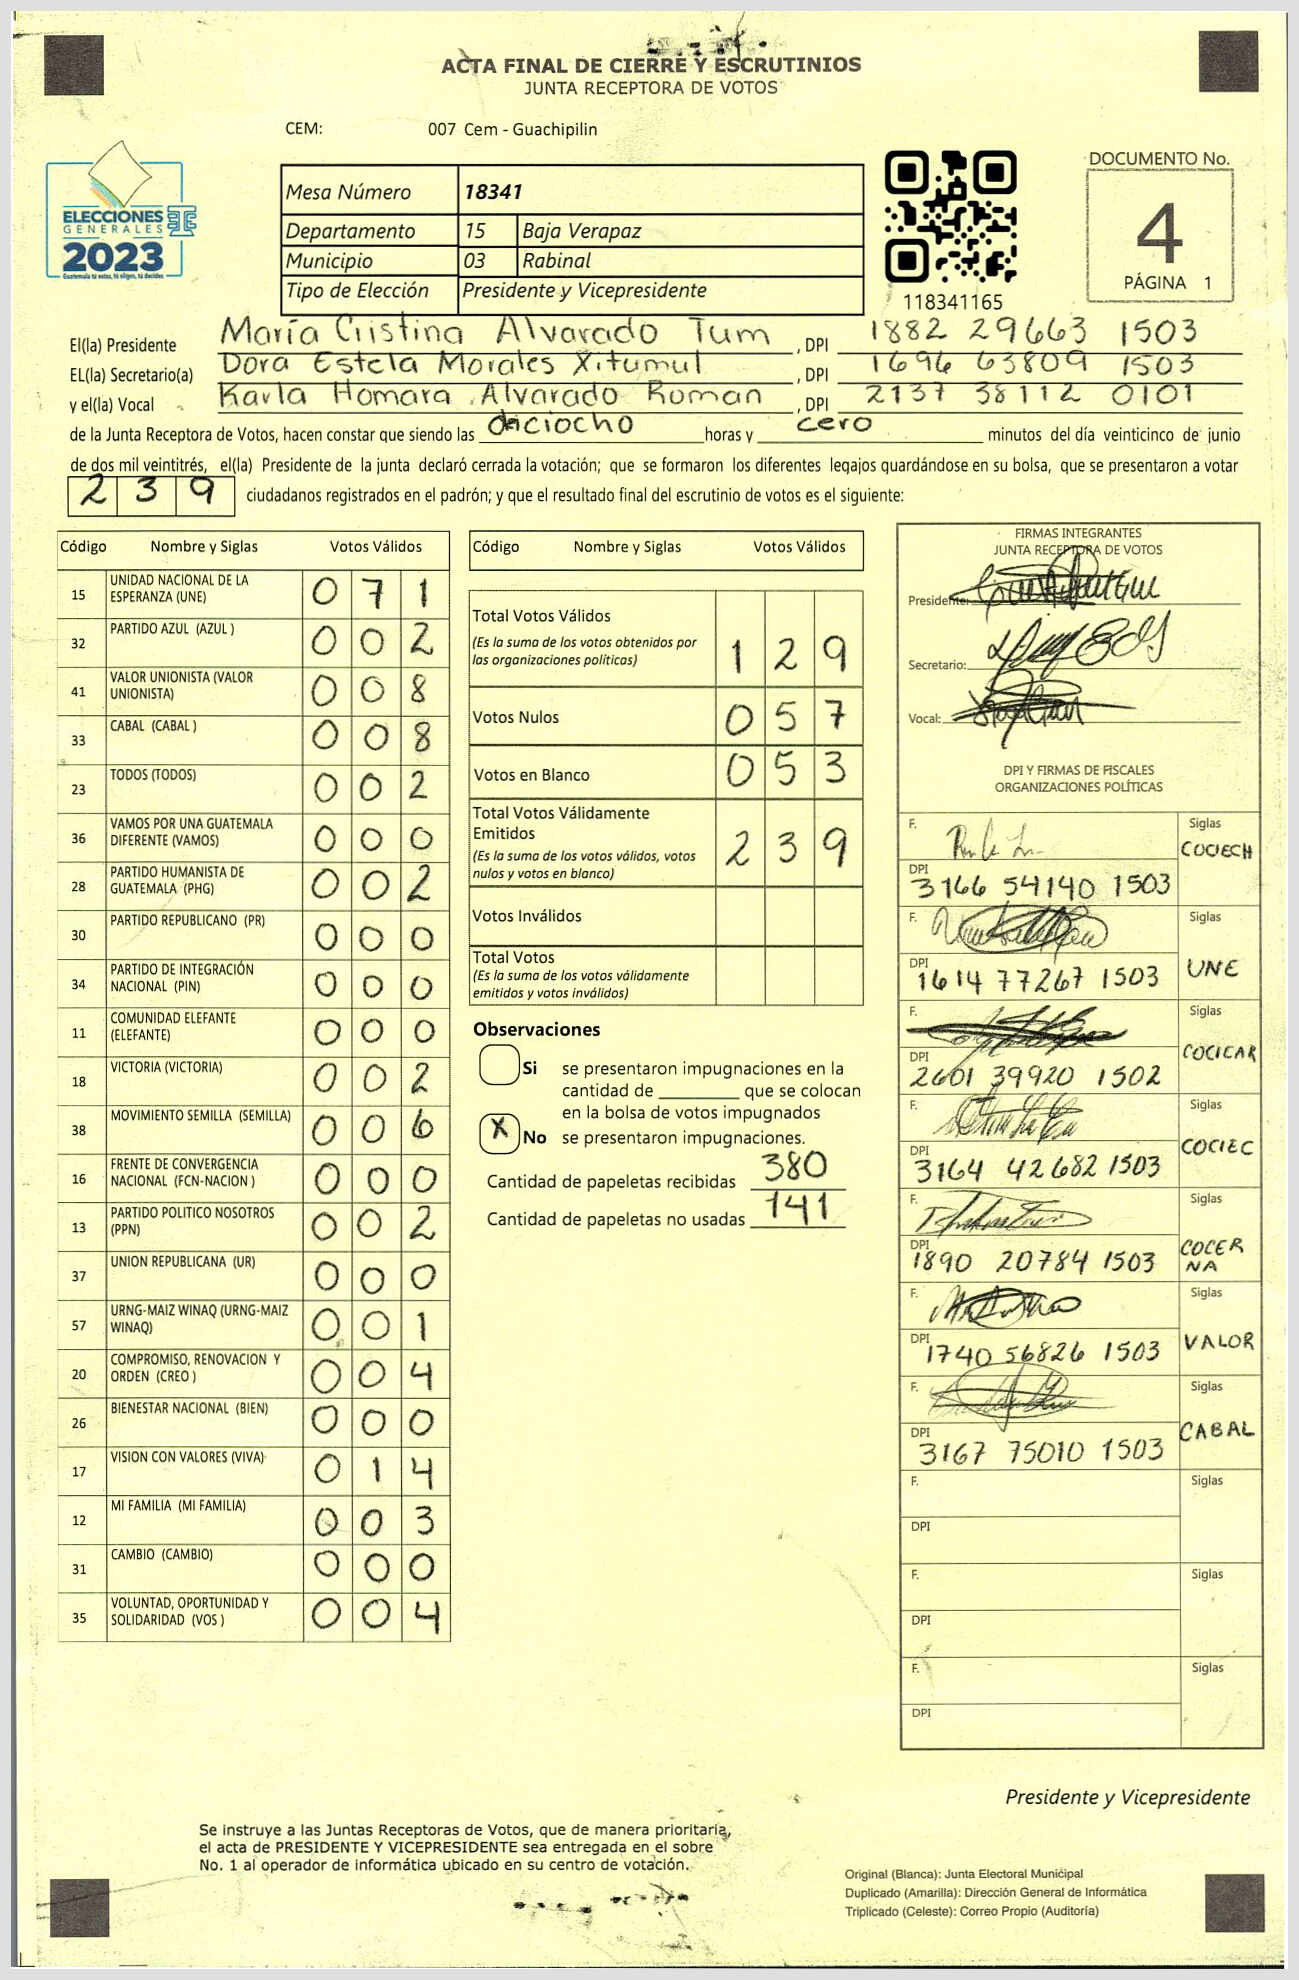 ACTA FINAL DE CIERRE Y ESCRUTINIOS
JUNTA RECEPTORA DE VOTOS
CEM: 007 Cem - Guachipilin
ELECCIONES
GENERALES
2023
Guatemala tú eres, tú eliges, tú decides
Mesa Número 18341
Departamento 15 Baja Verapaz
Municipio 03 Rabinal
Tipo de Elección Presidente y Vicepresidente
118341165
DOCUMENTO No.
4
PÁGINA 1
El(la) Presidente María Cristina Alvarado Tum, DPI 1882 29663 1503
EL(la) Secretario(a) Dora Estela Morales Xitumul, DPI 1696 63809 1503
y el(la) Vocal Karla Homara Alvarado Roman, DPI 2137 38112 0101
de la Junta Receptora de Votos, hacen constar que siendo las dieciocho horas y cero minutos del día veinticinco de junio
de dos mil veintitrés, el(la) Presidente de la junta declaró cerrada la votación; que se formaron los diferentes legajos guardándose en su bolsa, que se presentaron a votar
239 ciudadanos registrados en el padrón; y que el resultado final del escrutinio de votos es el siguiente:
Código Nombre y Siglas Votos Válidos
15 UNIDAD NACIONAL DE LA ESPERANZA (UNE) 0 7 1
32 PARTIDO AZUL (AZUL ) 0 0 2
41 VALOR UNIONISTA (VALOR UNIONISTA) 0 0 8
33 CABAL (CABAL ) 0 0 8
23 TODOS (TODOS) 0 0 2
36 VAMOS POR UNA GUATEMALA DIFERENTE (VAMOS) 0 0 0
28 PARTIDO HUMANISTA DE GUATEMALA (PHG) 0 0 2
30 PARTIDO REPUBLICANO (PR) 0 0 0
34 PARTIDO DE INTEGRACIÓN NACIONAL (PIN) 0 0 0
11 COMUNIDAD ELEFANTE (ELEFANTE) 0 0 0
18 VICTORIA (VICTORIA) 0 0 2
38 MOVIMIENTO SEMILLA (SEMILLA) 0 0 6
16 FRENTE DE CONVERGENCIA NACIONAL (FCN-NACION ) 0 0 0
13 PARTIDO POLITICO NOSOTROS (PPN) 0 0 2
37 UNION REPUBLICANA (UR) 0 0 0
57 URNG-MAIZ WINAQ (URNG-MAIZ WINAQ) 0 0 1
20 COMPROMISO, RENOVACION Y ORDEN (CREO ) 0 0 4
26 BIENESTAR NACIONAL (BIEN) 0 0 0
17 VISION CON VALORES (VIVA) 0 1 4
12 MI FAMILIA (MI FAMILIA) 0 0 3
31 CAMBIO (CAMBIO) 0 0 0
35 VOLUNTAD, OPORTUNIDAD Y SOLIDARIDAD (VOS ) 0 0 4
Código Nombre y Siglas Votos Válidos
Total Votos Válidos
(Es la suma de los votos obtenidos por
las organizaciones políticas) 1 2 9
Votos Nulos 0 5 7
Votos en Blanco 0 5 3
Total Votos Válidamente
Emitidos
(Es la suma de los votos válidos, votos
nulos y votos en blanco) 2 3 9
Votos Inválidos
Total Votos
(Es la suma de los votos válidamente
emitidos y votos inválidos)
Observaciones
Si se presentaron impugnaciones en la
cantidad de ________ que se colocan
en la bolsa de votos impugnados
X No se presentaron impugnaciones.
Cantidad de papeletas recibidas 380
Cantidad de papeletas no usadas 141
FIRMAS INTEGRANTES
JUNTA RECEPTORA DE VOTOS
Presidente:
Secretario:
Vocal:
DPI Y FIRMAS DE FISCALES
ORGANIZACIONES POLÍTICAS
F. Siglas COCIECH
DPI 3166 54140 1503
F. Siglas UNE
DPI 1614 77267 1503
F. Siglas COCICAR
DPI 2601 39920 1502
F. Siglas COCIEC
DPI 3164 42682 1503
F. Siglas COCER NA
DPI 1890 20784 1503
F. Siglas VALOR
DPI 1740 56826 1503
F. Siglas CABAL
DPI 3167 75010 1503
F. Siglas
DPI
F. Siglas
DPI
F. Siglas
DPI
Presidente y Vicepresidente
Se instruye a las Juntas Receptoras de Votos, que de manera prioritaria,
el acta de PRESIDENTE Y VICEPRESIDENTE sea entregada en el sobre
No. 1 al operador de informática ubicado en su centro de votación.
Original (Blanca): Junta Electoral Municipal
Duplicado (Amarilla): Dirección General de Informática
Triplicado (Celeste): Correo Propio (Auditoría)